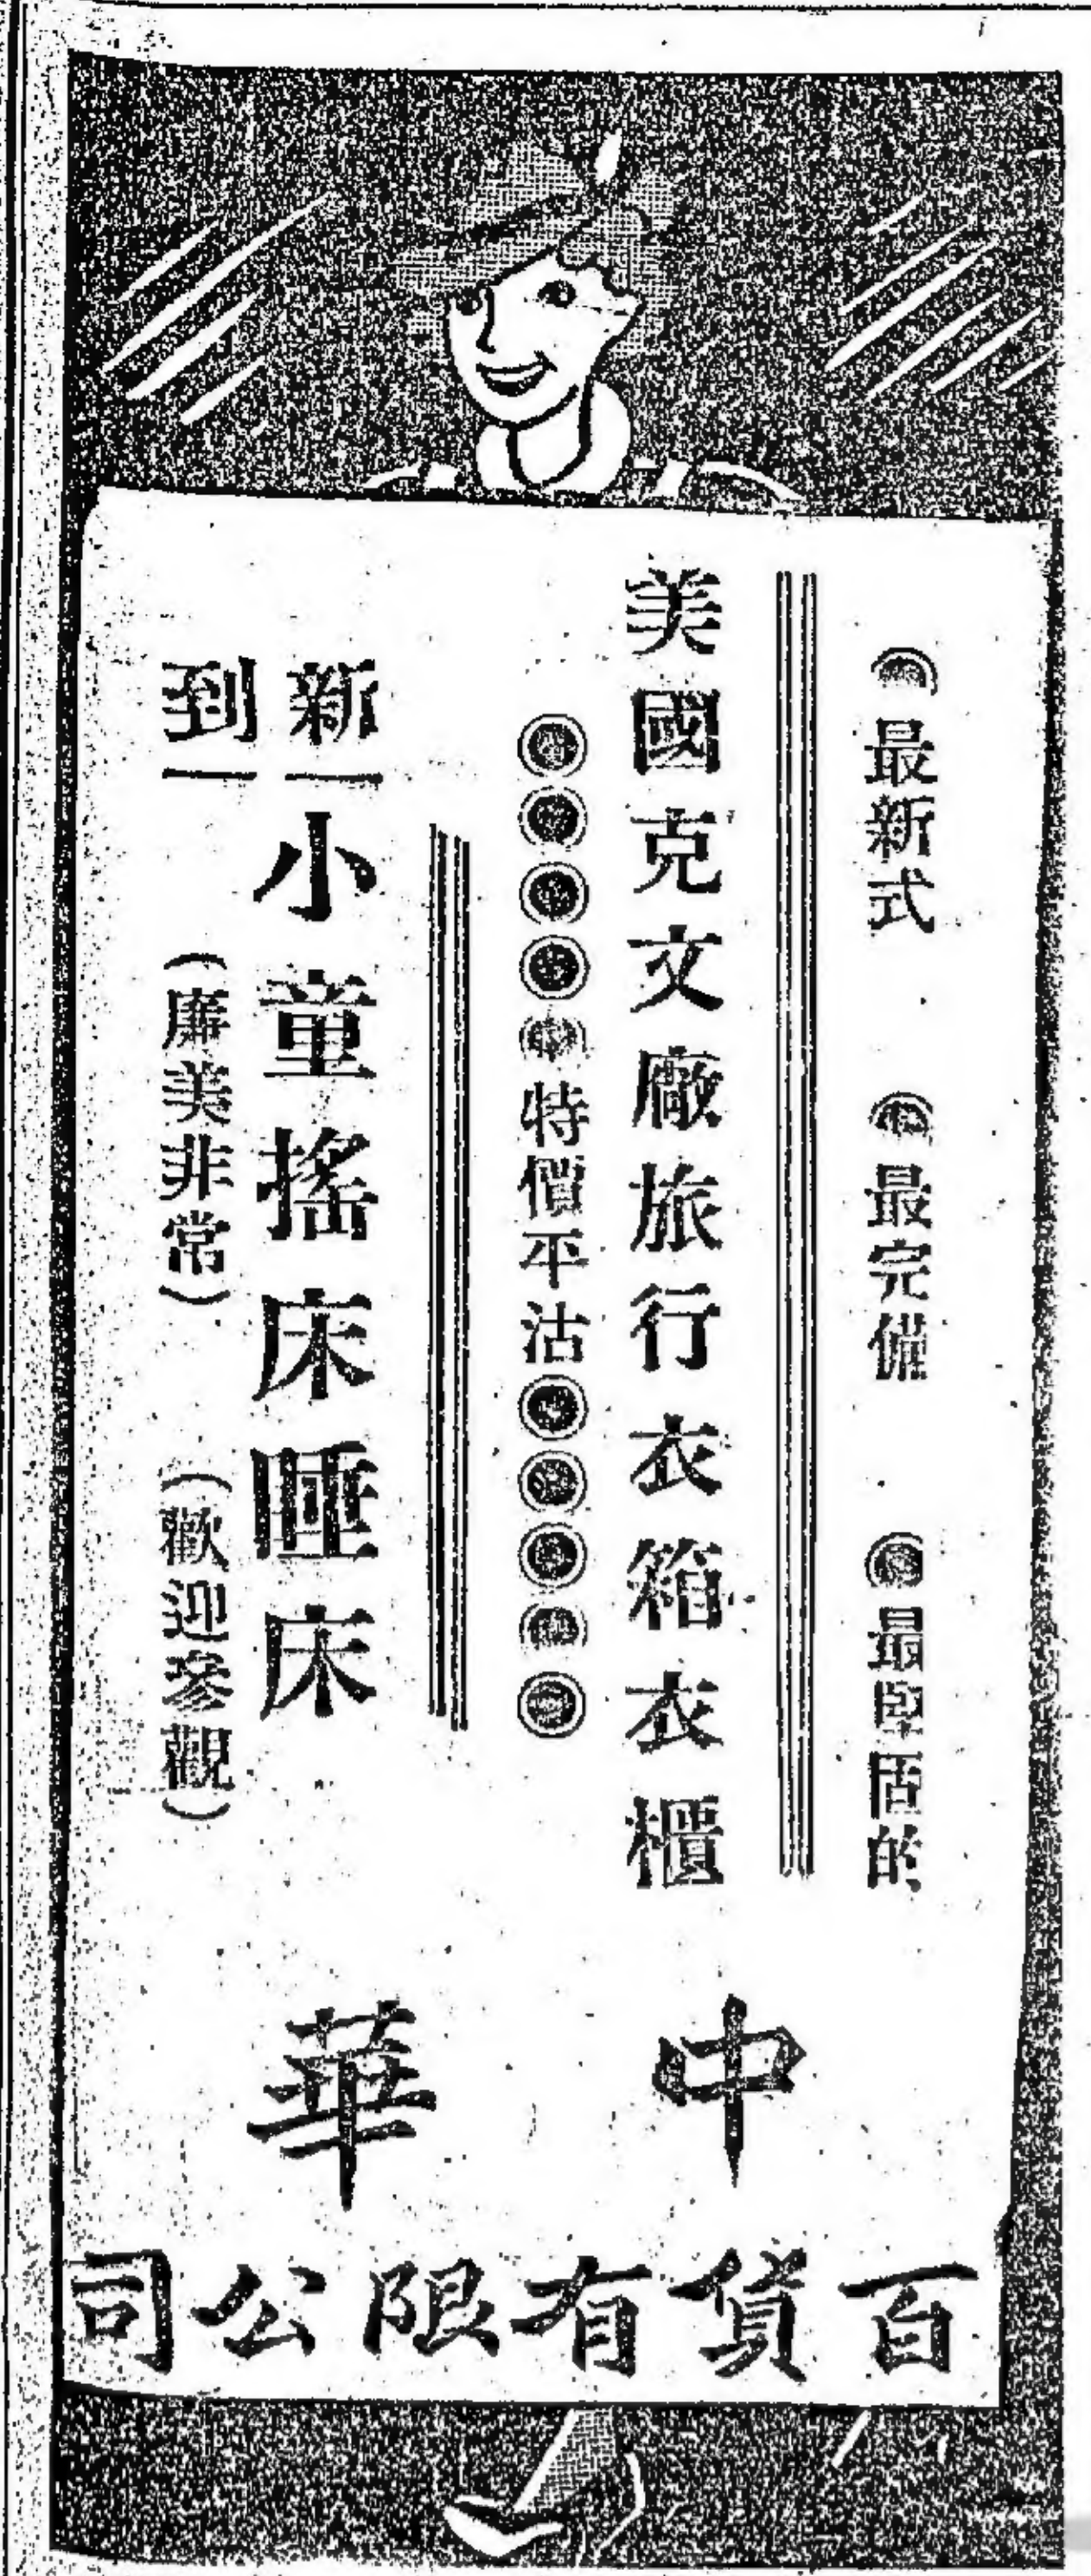 ◉最新式 ◉最完備 ◉最堅固的
美國克文廠旅行衣箱衣櫃
◉◉◉◉◉特價平沽◉◉◉◉◉
新到 小童搖床睡床
(廉美非常) (歡迎參觀)
中華
百貨有限公司